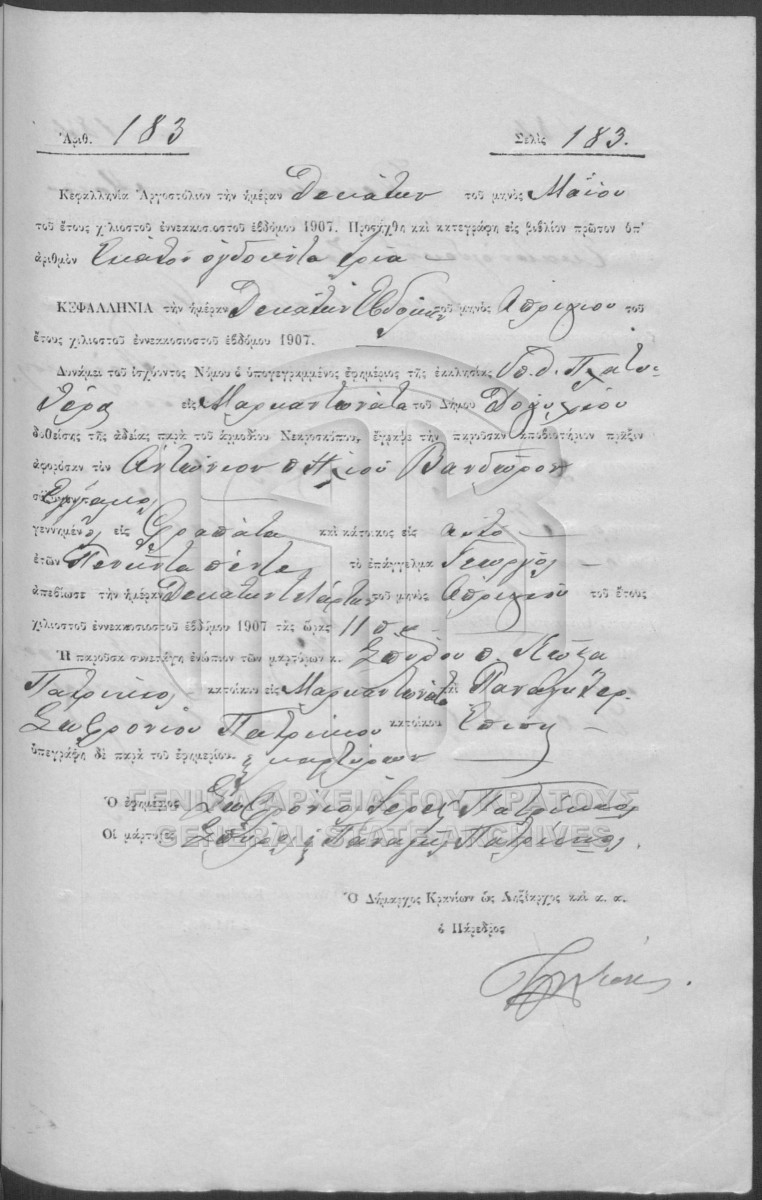 Ἀριθ. 183
Σελὶς 183.
Κεφαλληνία Ἀργοστόλιον τὴν ἡμέραν Δεκάτην τοῦ μηνὸς Μαΐου
τοῦ ἔτους χιλιοστοῦ ἐννεακοσιοστοῦ ἑβδόμου 1907. Προσήχθη καὶ κατεγράφη εἰς βιβλίον πρῶτον ὑπ'
ἀριθμὸν Ἑκατὸν ὀγδοῆντα τρία
ΚΕΦΑΛΛΗΝΙΑ τὴν ἡμέραν Δεκάτην Ἑβδόμην τοῦ μηνὸς Ἀπριλίου τοῦ
ἔτους χιλιοστοῦ ἐννεακοσιοστοῦ ἑβδόμου 1907.
Δυνάμει τοῦ ἰσχύοντος Νόμου ὁ ὑπογεγραμμένος ἐφημέριος τῆς ἐκκλησίας Πλατυ-
τέρα εἰς Μαρκαντωνάτα τοῦ Δήμου
δοθείσης τῆς ἀδείας παρὰ τοῦ ἁρμοδίου Νεκροσκόπου, ἔγραψε τὴν παροῦσαν ἀποβιωτήριον πρᾶξιν
ἀφορῶσαν τὸν Ἀντώνιον π Ἠλιοῦ Βανδῶρον
Ἔγγαμος
γεννημέν εἰς Τραπάτα καὶ κάτοικος εἰς αὐτό
ἐτῶν Πενῆντα πέντε τὸ ἐπάγγελμα Γεωργός
ἀπεβίωσε τὴν ἡμέραν Δεκάτην Τετάρτην τοῦ μηνὸς Ἀπριλίου τοῦ ἔτους
χιλιοστοῦ ἐννεακοσιοστοῦ ἑβδόμου 1907 τὰς ὥρας 11 π μ
Ἡ παροῦσα συνετάγη ἐνώπιον τῶν μαρτύρων κ. Σπύρου π
Πατρίκιος κατοίκου εἰς Μαρκαντωνάτα καὶ Παναγῆ Ἱερ.
Σωφρονίου Πατρικίου κατοίκου ἐπίσης
ὑπεγράφη δὲ παρὰ τοῦ ἐφημερίου. καὶ μαρτύρων
ΓΕΝΙΚΑ ΑΡΧΕΙΑ ΤΟΥ ΚΡΑΤΟΥΣ
Ὁ ἐφημέριος Σωφρόνιο Ἱερεύς Πατρίκιος
GENERAL STATE ARCHIVES
Οἱ μάρτυρες Σπύρος & Παναγῆς Πατρίκιος.
Ὁ Δήμαρχος Κρανίων ὡς Ληξίαρχος καὶ α. α.
ὁ Πάρεδρος